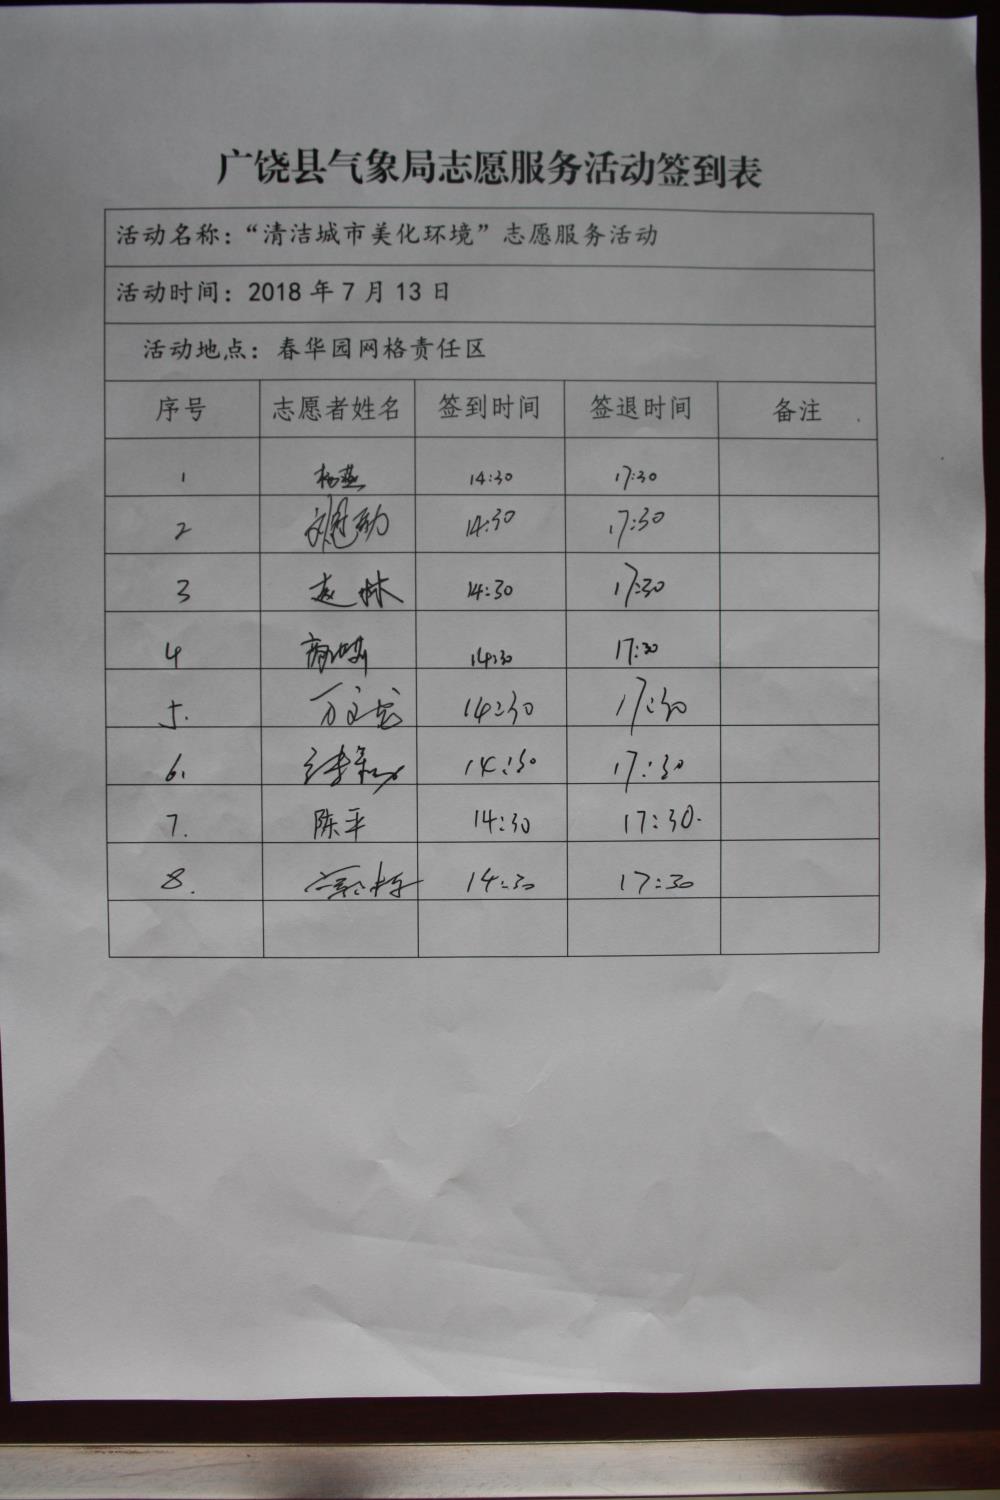 广饶县气象局志愿服务活动签到表
活动名称：“清洁城市美化环境”志愿服务活动
活动时间：2018年7月13日
活动地点：春华园网格责任区
序号 志愿者姓名 签到时间 签退时间 备注
1 杨燕 14:30 17:30
2 14:30 17:30
3 赵林 14:30 17:30
4 14:30 17:30
5. 万文龙 14:30 17:30
6. 14:30 17:30
7. 陈平 14:30 17:30.
8. 14:30 17:30